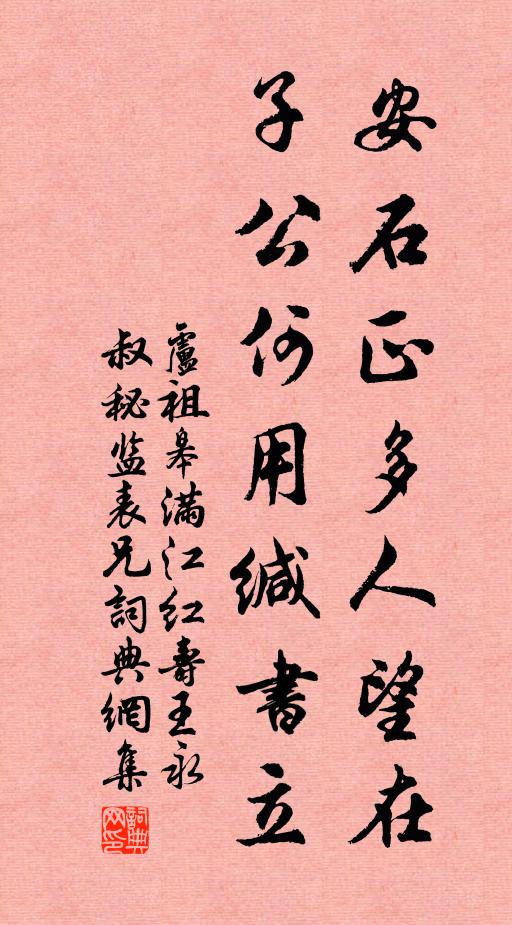 安石正多人望在
子公何用緘書立
盧祖皋满江红壽王永
叔秘监表兄詞典網集
詞典网印